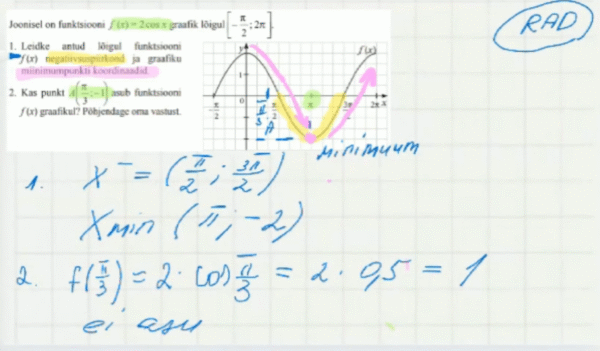 Joonisel on funktsiooni f(x) = 2 cos x graafik lõigul [-π/2; 2π].
RAD
1. Leidke antud lõigul funktsiooni
f(x) negatiivsuspiirkond ja graafiku
miinimumpunkti koordinaadid.
2. Kas punkt A(π/3; -1) asub funktsiooni
f(x) graafikul? Põhjendage oma vastust.
y
f(x)
1
-π/2 0 π/3 π 3π/2 2π x
A
minimuum
1. X⁻ = (π/2; 3π/2)
Xmin (π; -2)
2. f(π/3) = 2 · cos π/3 = 2 · 0,5 = 1
ei asu